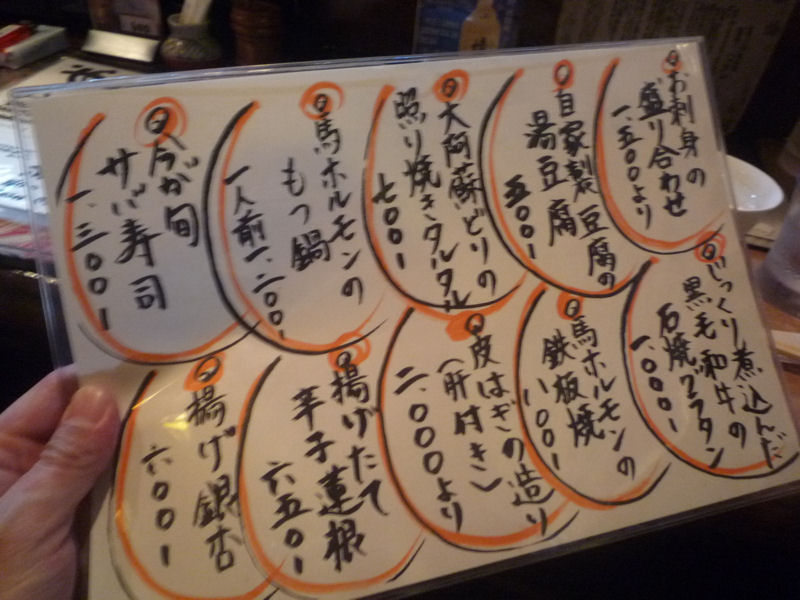 お刺身の
盛り合わせ
一、五〇〇より
自家製豆腐の
湯豆腐
五〇〇ー
大阿蘇どりの
照り焼きタルタル
七〇〇ー
馬ホルモンの
もつ鍋
一人前一、二〇〇ー
今が旬
サバ寿司
一、三〇〇ー
じっくり煮込んだ
黒毛和牛の
石焼グラタン
一、〇〇〇ー
馬ホルモンの
鉄板焼
八〇〇ー
皮はぎの造り
(肝付き)
二、〇〇〇より
揚げたて
辛子蓮根
六五〇ー
揚げ銀杏
六〇〇ー